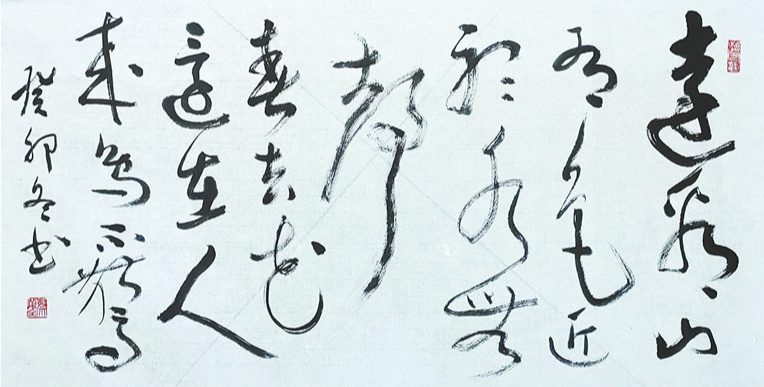 遠看山
有色近
聽水無
聲
春去花
還在人
來鳥不驚
癸卯冬书